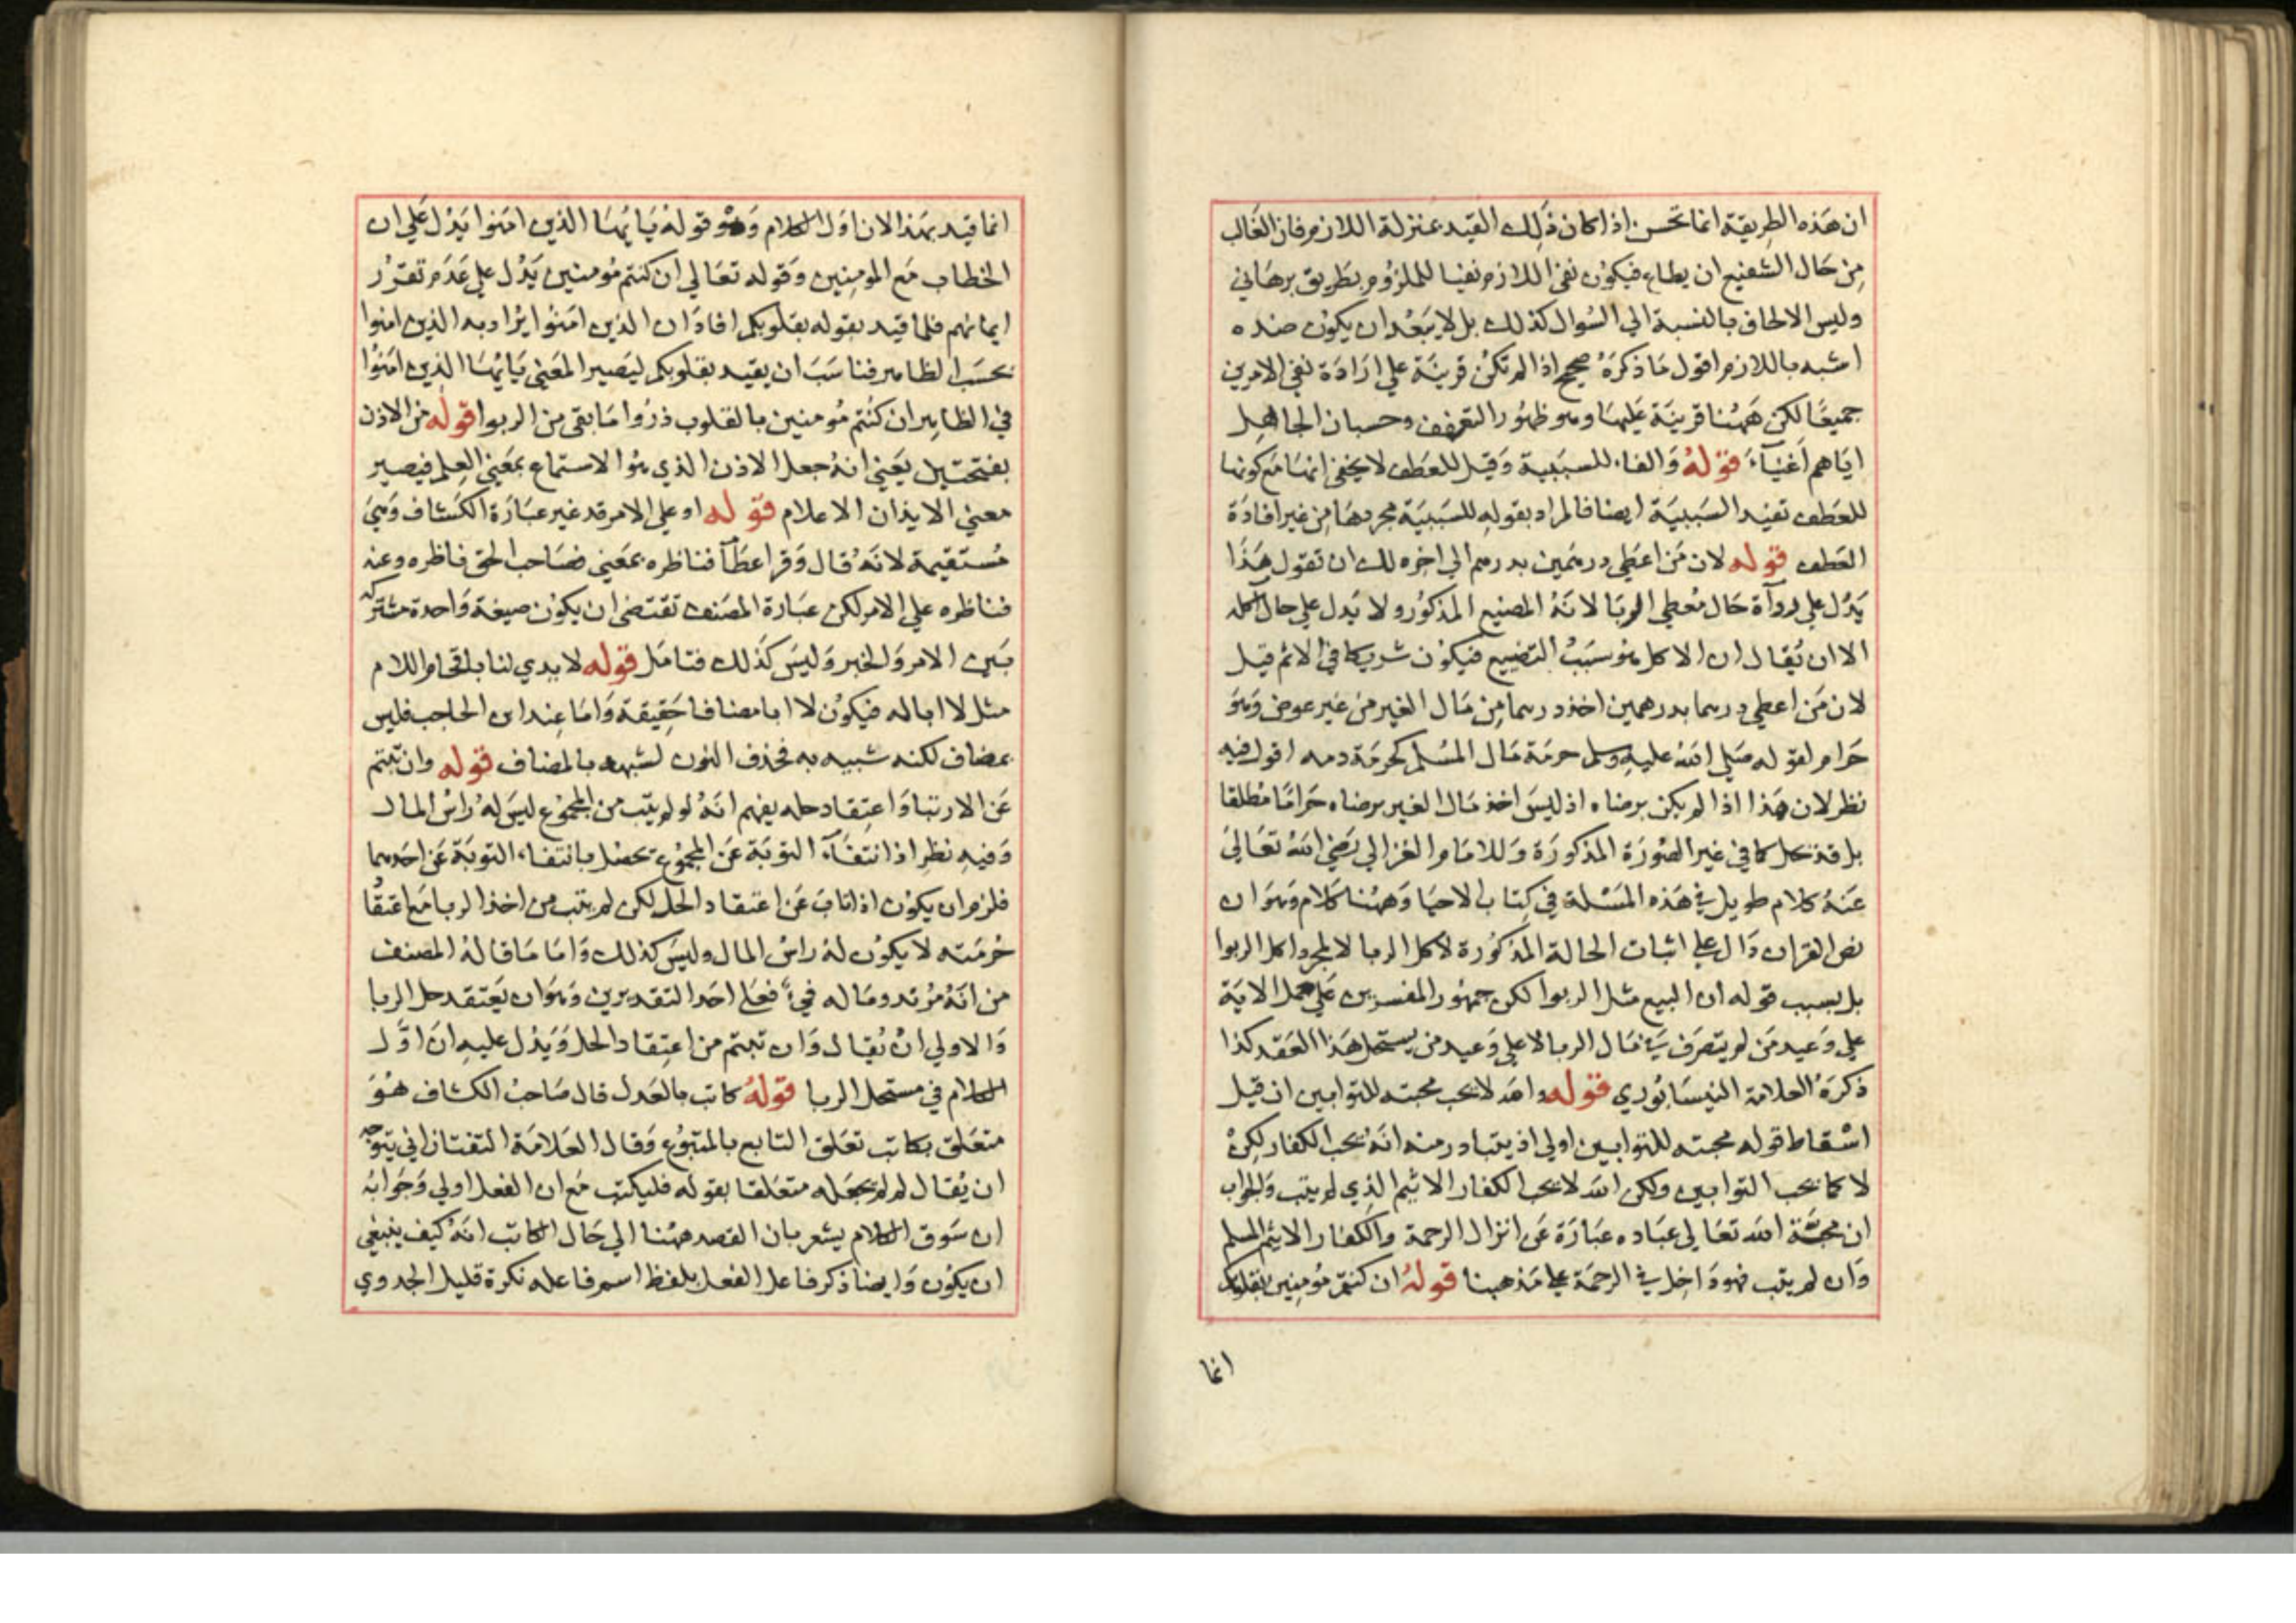 ان هذه الطريقة انما تحسن اذا كان ذلك القيد بمنزلة اللازم فان الغالب
من حال الشفيع ان يطاع فيكون نفي اللازم نفيا للملزوم بطريق برهاني
وليس الالحاف بالنسبة الي السوال كذلك بل لا يبعد ان يكون ضده
اشبه باللازم اقول ما ذكره صحيح اذا لم تكن قرينة علي ارادة نفي الامرين
جميعا لكن ههنا قرينة عليها وهو ظهور التعفف وحسبان الجاهل
اياهم اغنياء قوله والفاء للسببية وقيل للعطف لا يخفي انها مع كونها
للعطف تفيد السببية ايضا فالمراد بقوله للسببية مجردها من غير افادة
العطف قوله لان من اعطي درهمين بدرهم الي اخره لك ان تقول هذا
يدل علي حال معطي الربا لانه المضيع المذكور ولا يدل علي حال اكله
الا ان يقال ان الاكل هو سبب التضييع فيكون شريكا في الاثم قيل
لان من اعطي درهما بدرهمين اخذ درهما من مال الغير من غير عوض وهو
حرام لقوله صلي الله عليه وسلم حرمة مال المسلم كحرمة دمه اقول فيه
نظر لان هذا اذا لم يكن برضاه اذ ليس اخذ مال الغير برضاه حراما مطلقا
بل قد يحل كما في غير الصورة المذكورة وللامام الغزالي رضي الله تعالي
عنه كلام طويل في هذه المسئلة في كتاب الاحيا وههنا كلام وهو ان
نص القران دال علي اثبات الحالة المذكورة لاكل الربا لا لمجرد اكل الربوا
بل بسبب قوله ان البيع مثل الربوا لكن جمهور المفسرين علي حمل الاية
علي وعيد من لم يتصرف في مال الربا لا علي وعيد من يستحل هذا العقد كذا
ذكره العلامة النيسابوري قوله والله لا يحب محبته للتوابين ان قيل
اسقاط قوله محبته للتوابين اولي اذ يتبادر منه انه يحب الكفار لكن
لا كما يحب التوابين ولكن الله لا يحب الكفار الاثيم الذي لم يتب والجواب
ان محبة الله تعالي عباده عبارة عن انزال الرحمة والكفار الاثيم المسلم
وان لم يتب فهو داخل في الرحمة علي مذهبنا قوله ان كنتم مؤمنين بقلوبكم
انما
انما قيد بهذا لان اول الكلام وهو قوله يا ايها الذين امنوا يدل علي ان
الخطاب مع المومنين وقوله تعالي ان كنتم مومنين يدل علي عدم تقرر
ايمانهم فلما قيد بقوله بقلوبكم افاد ان الذين امنوا يراد به الذين امنوا
بحسب الظاهر فناسب ان يقيد بقلوبكم ليصير المعني يا ايها الذين امنوا
في الظاهر ان كنتم مومنين بالقلوب ذروا ما بقي من الربوا قوله من الاذن
بفتحتين يعني انه جعل الاذن الذي هو الاستماع بمعني العلم فيصير
معني الايذان الاعلام قوله او علي الامر قد غير عبارة الكشاف وهي
مستقيمة لانه قال وقرا عطآ فناظره بمعني فصاحب الحق فاظره وعنه
فناظره علي الامر لكن عبارة المصنف تقتضي ان يكون صيغة واحدة مشتركة
بين الامر والخبر وليس كذلك فتامل قوله لا يدي لنا باقحام اللام
مثل لا ابا له فيكون لا ابا مضافا حقيقة واما عند ابن الحاجب فليس
بمضاف لكنه شبيه به فحذف النون لشبهه بالمضاف قوله وان تبتم
عن الارتبا واعتقاد حله يفهم انه لو لم يتب من المجموع ليس له راس المال
وفيه نظر اذ انتفاء التوبة عن المجموع تحصل بانتفاء التوبة عن احدهما
فلزم ان يكون اذا تاب عن اعتقاد الحل لكن لم يتب من اخذ الربا مع اعتقاد
حرمته لا يكون له راس المال وليس كذلك واما ما قاله المصنف
من انه مرتد وماله فيء فعلي احد التقديرين وهو ان يعتقد حل الربا
والاولي ان يقال وان تبتم من اعتقاد الحل ويدل عليه ان اول
الكلام في مستحل الربا قوله كاتب بالعدل قال صاحب الكشاف هو
متعلق بكاتب تعلق التابع بالمتبوع وقال العلامة التفتازاني يتوجه
ان يقال لم لم يجعله متعلقا بقوله فليكتب مع ان الفعل اولي وجوابه
ان سوق الكلام يشعر بان القصد ههنا الي حال الكاتب انه كيف ينبغي
ان يكون وايضا ذكر فاعل الفعل بلفظ اسم فاعله نكرة قليل الجدوي